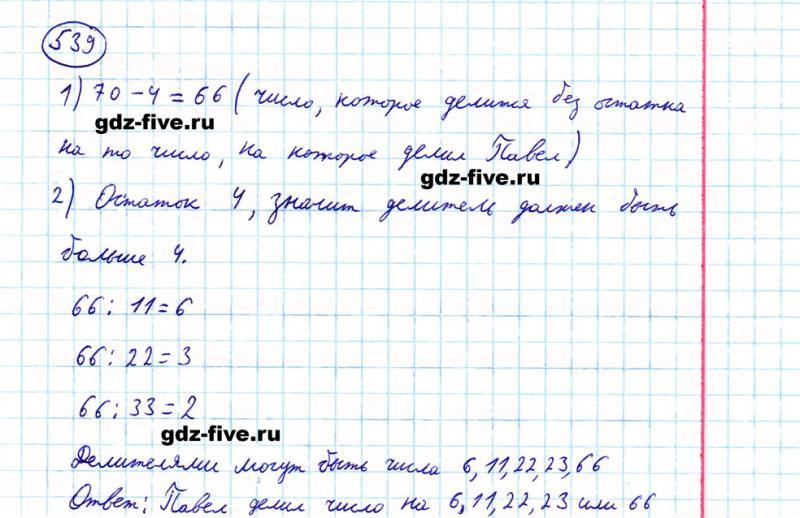 539
1) 70 - 4 = 66 (число, которое делится без остатка
gdz-five.ru
на то число, на которое делил Павел)
gdz-five.ru
2) Остаток 4, значит делитель должен быть
больше 4.
66 : 11 = 6
66 : 22 = 3
66 : 33 = 2
gdz-five.ru
Делителями могут быть числа 6, 11, 22, 23, 66
Ответ: Павел делил число на 6, 11, 22, 23 или 66